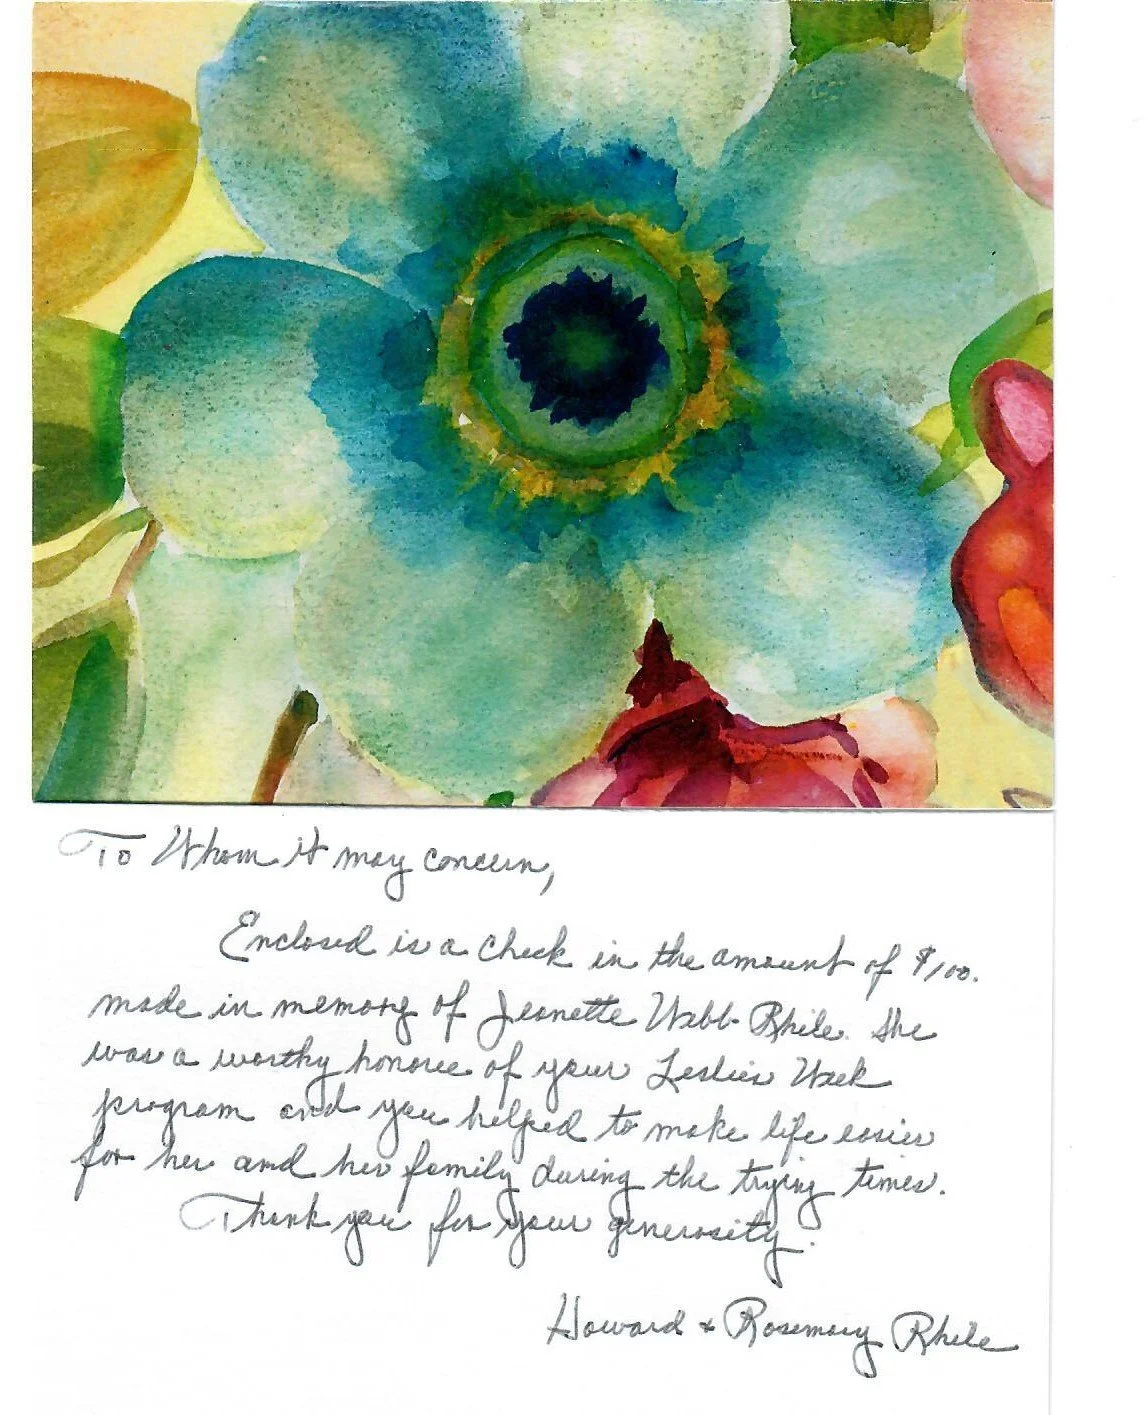 To Whom it may concern,
Enclosed is a check in the amount of $100.
made in memory of Jeanette Webb Rhile. She
was a worthy honoree of your Leslies Week
program and you helped to make life easier
for her and her family during the trying times.
Thank you for your generosity.
Howard & Rosemary Rhile